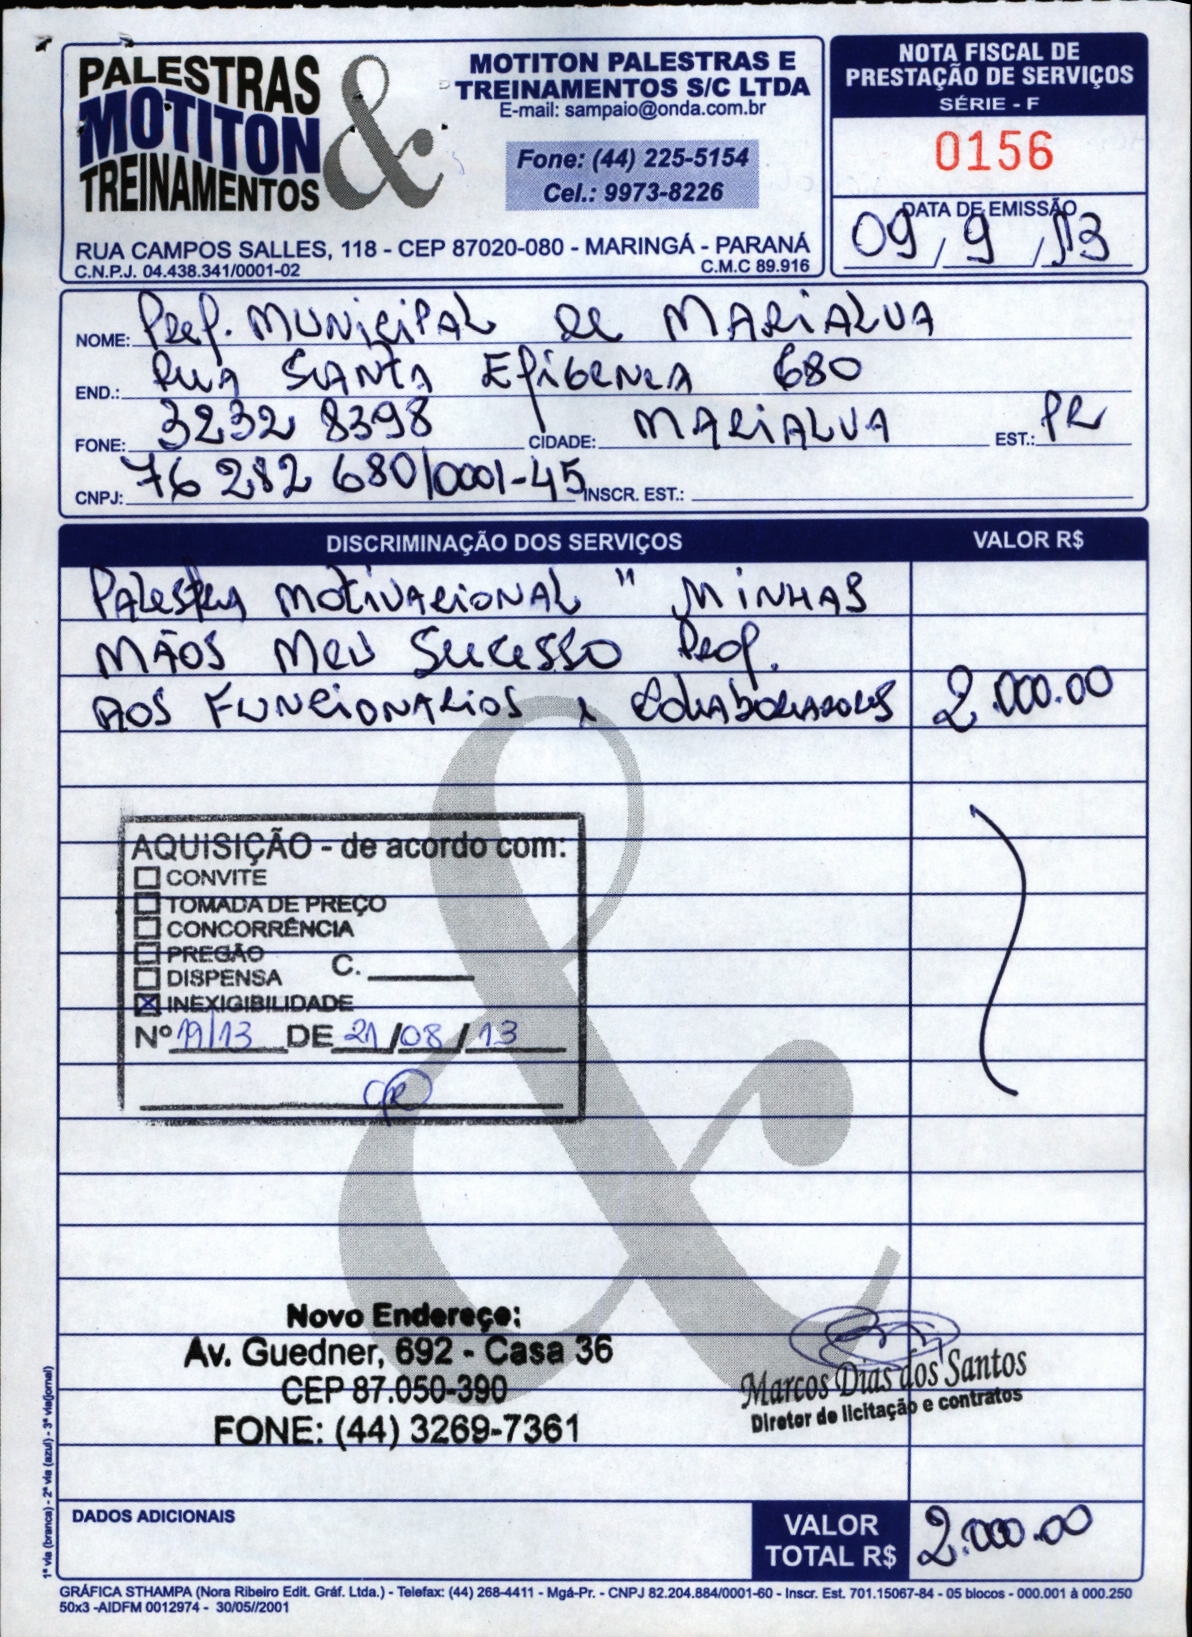 PALESTRAS
MOTITON
TREINAMENTOS
&
MOTITON PALESTRAS E
TREINAMENTOS S/C LTDA
E-mail: sampaio@onda.com.br
Fone: (44) 225-5154
Cel.: 9973-8226
RUA CAMPOS SALLES, 118 - CEP 87020-080 - MARINGÁ - PARANÁ
C.N.P.J. 04.438.341/0001-02 C.M.C 89.916
NOTA FISCAL DE
PRESTAÇÃO DE SERVIÇOS
SÉRIE - F
0156
DATA DE EMISSÃO
09/9/13
NOME: Pref. MUNICIPAL de MARIALVA
END.: RUA SANTA EFIGENIA 680
FONE: 3232 8398 CIDADE: MARIALVA EST.: PR
CNPJ: 76 282 680/0001-45 INSCR. EST.:
DISCRIMINAÇÃO DOS SERVIÇOS VALOR R$
PALESTRA MOTIVACIONAL " MINHAS
MÃOS MEU SUCESSO Prof.
AOS FUNCIONARIOS e COLABORADORES 2.000.00
AQUISIÇÃO - de acordo com:
CONVITE
TOMADA DE PREÇO
CONCORRÊNCIA
PREGÃO
DISPENSA C.
INEXIGIBILIDADE
Nº 19/13 DE 21/08/13
Novo Endereço:
Av. Guedner, 692 - Casa 36
CEP 87.050-390
FONE: (44) 3269-7361
Marcos Dias dos Santos
Diretor de licitação e contratos
1ª via (branca) - 2ª via (azul) - 3ª via(jornal)
DADOS ADICIONAIS
VALOR
TOTAL R$ 2.000.00
GRÁFICA STHAMPA (Nora Ribeiro Edit. Gráf. Ltda.) - Telefax: (44) 268-4411 - Mgá-Pr. - CNPJ 82.204.884/0001-60 - Inscr. Est. 701.15067-84 - 05 blocos - 000.001 à 000.250
50x3 -AIDFM 0012974 - 30/05//2001